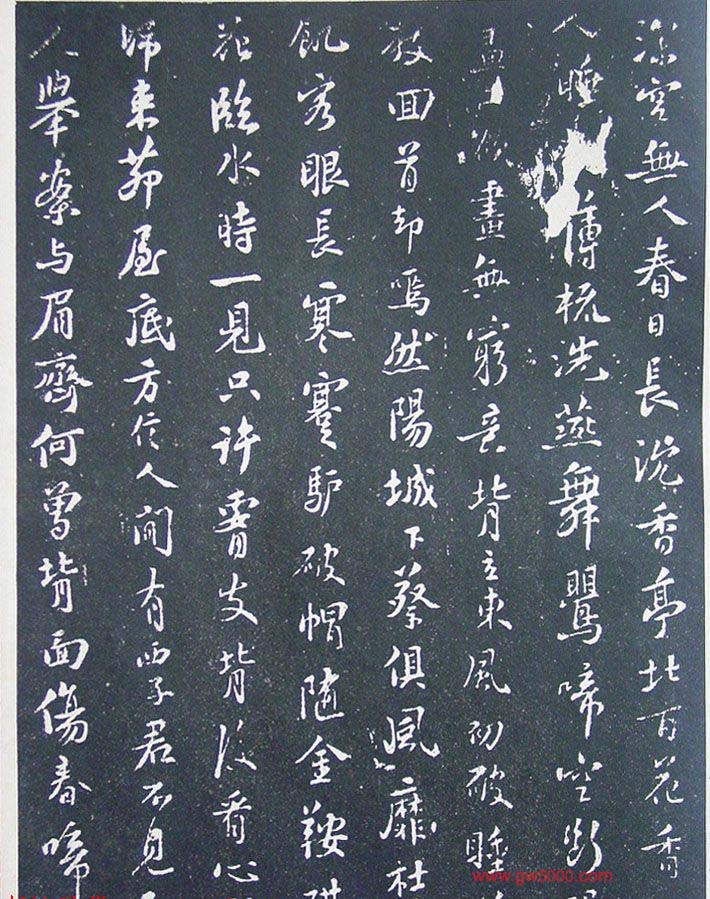 深宮無人春日長沈香亭北百花香
人睡薄梳洗燕舞鶯啼空斷
欲畫無窮意背立東風初破睡
教回首却嫣然陽城下蔡俱風靡杜
飢客眼長寒蹇驢破帽隨金鞍
花臨水時一見只許腰支背後看心
歸來茆屋底方信人間有西子君不見
人舉案与眉齊何曾背面傷春啼
www.gw5000.com